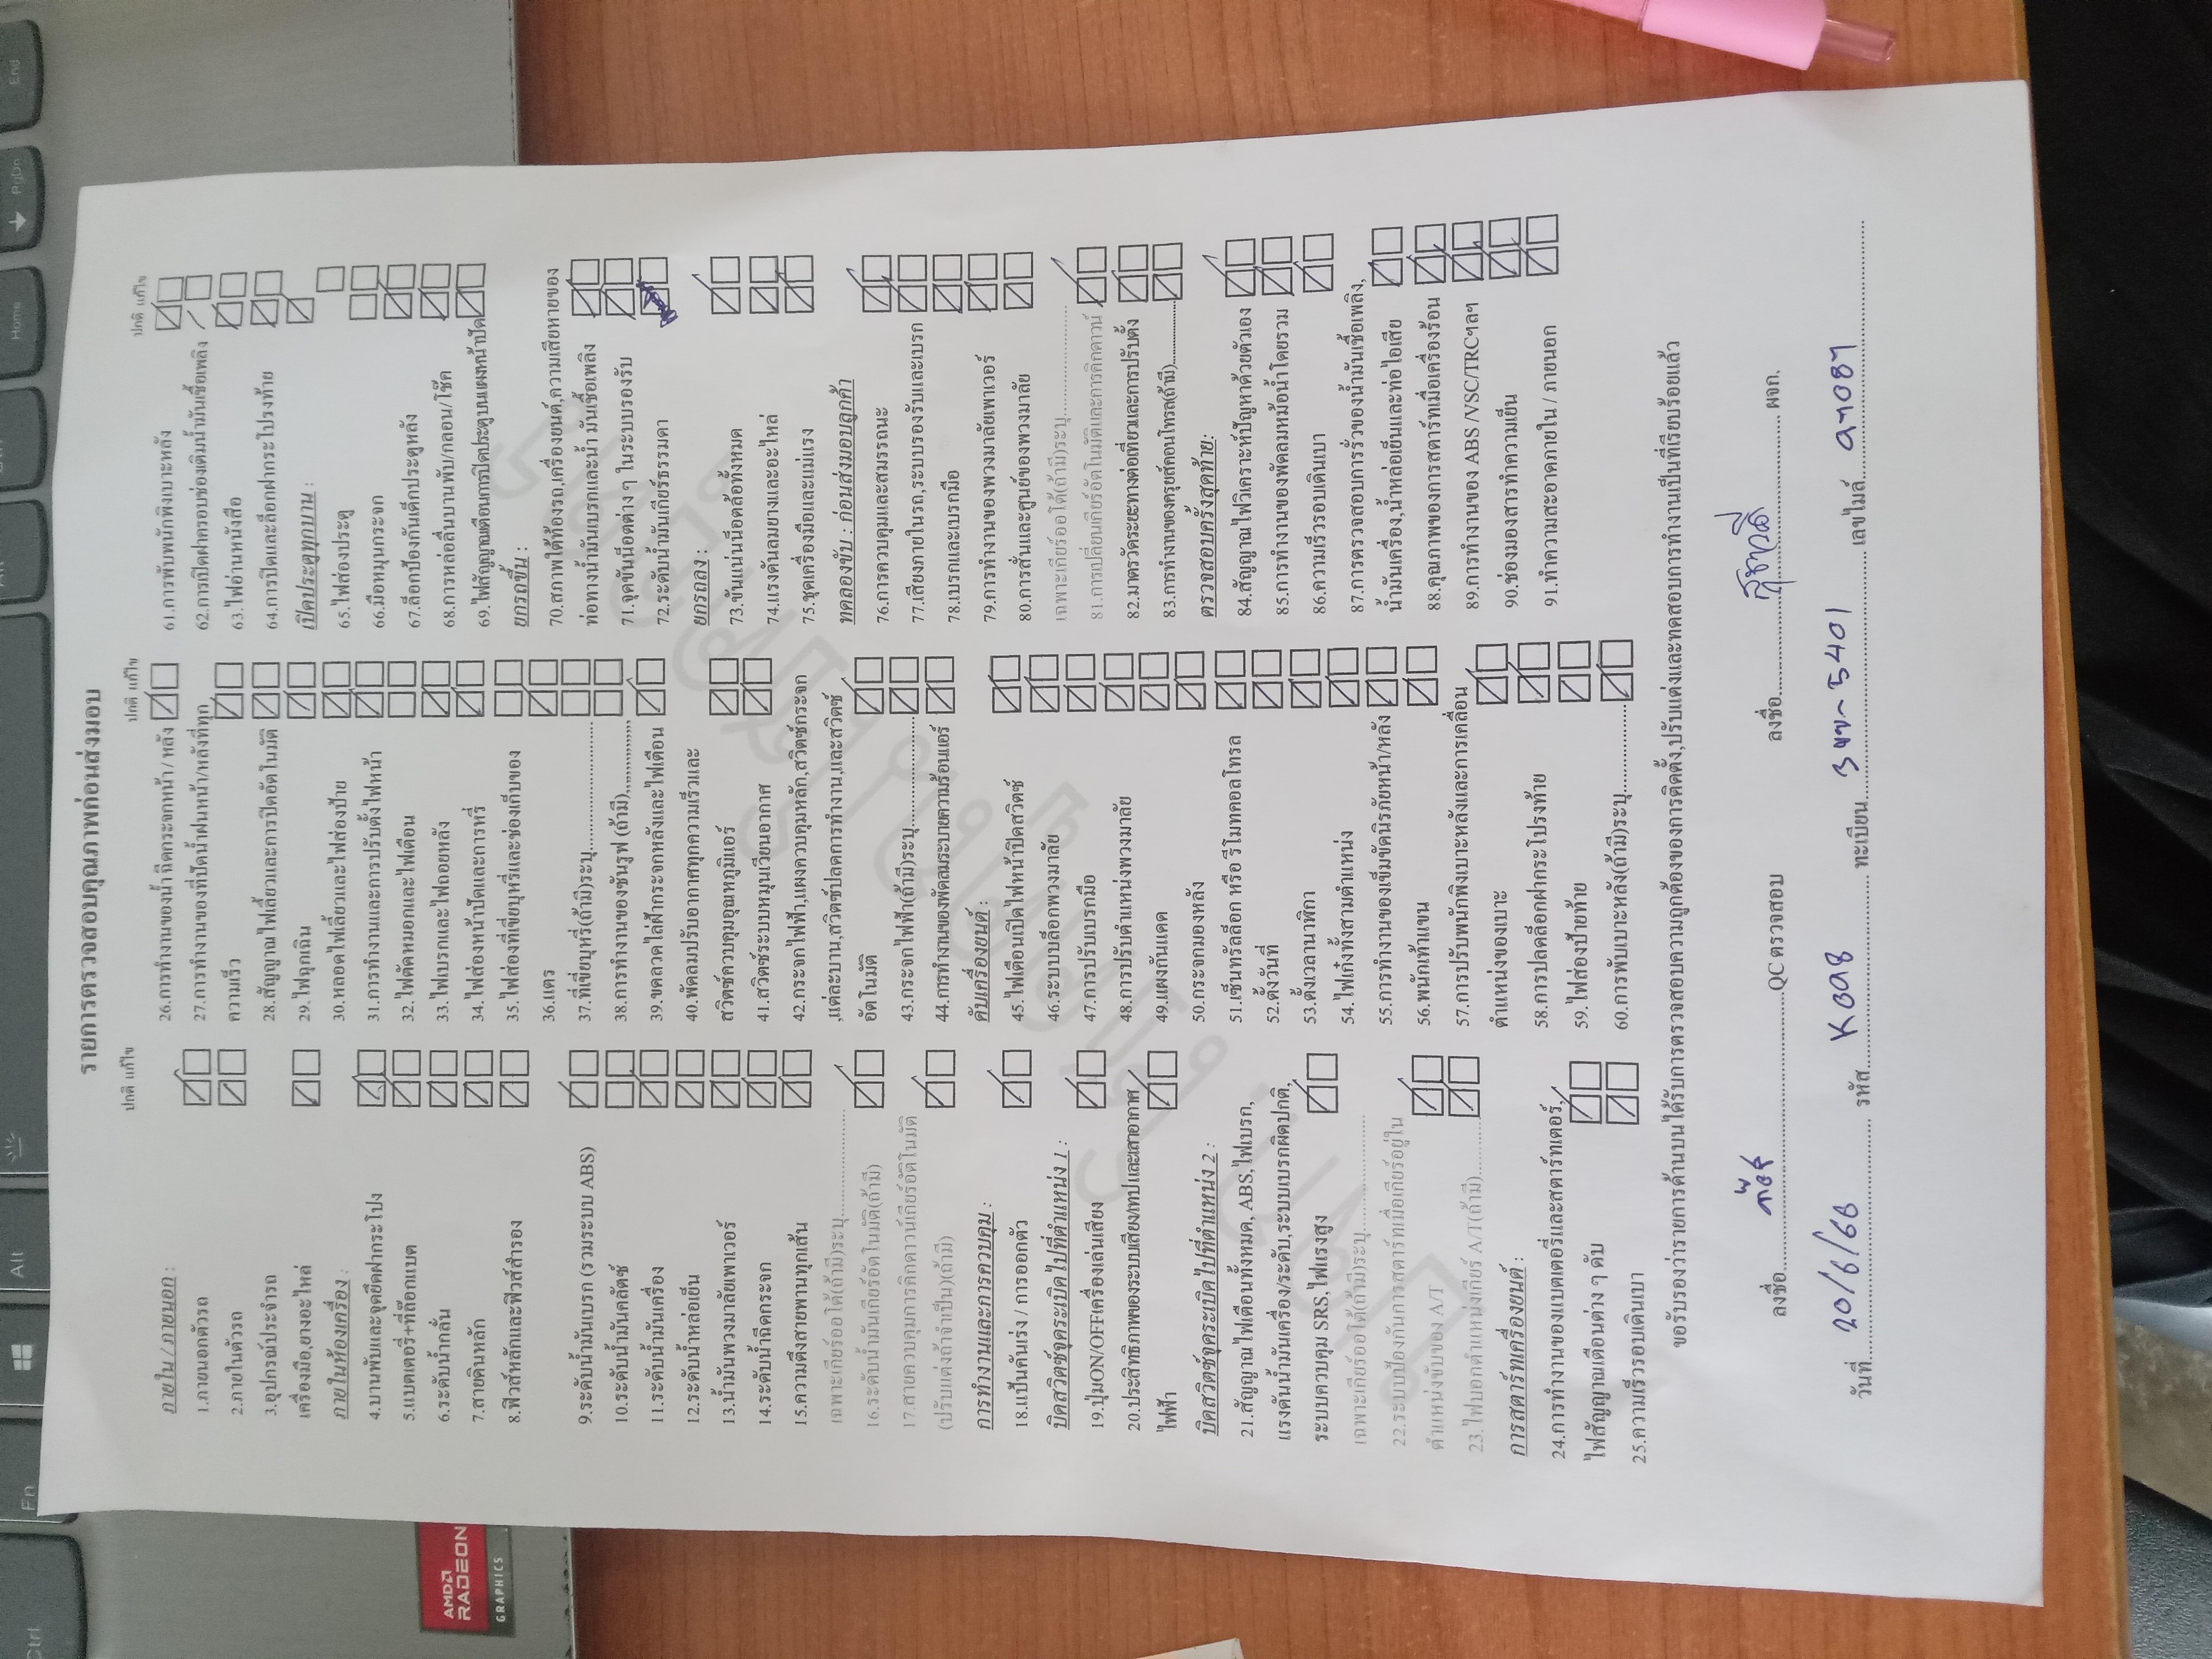 รายการตรวจสอบคุณภาพก่อนส่งมอบ
ปกติ แก้ไข
ภายใน / ภายนอก :
1.ภายนอกตัวรถ
2.ภายในตัวรถ
3.อุปกรณ์ประจำรถ
เครื่องมือ,ยางอะไหล่
ภายในห้องเครื่อง :
4.บานพับและจุดยึดฝากระโปง
5.แบตเตอรี่+ที่ล๊อกแบต
6.ระดับน้ำกลั่น
7.สายดินหลัก
8.ฟิวส์หลักและฟิวส์สำรอง
9.ระดับน้ำมันเบรก (รวมระบบ ABS)
10.ระดับน้ำมันคลัตช์
11.ระดับน้ำมันเครื่อง
12.ระดับน้ำหล่อเย็น
13.น้ำมันพวงมาลัยเพาเวอร์
14.ระดับน้ำฉีดกระจก
15.ความตึงสายพานทุกเส้น
เฉพาะเกียร์ออโต้(ถ้ามี)ระบุ
16.ระดับน้ำมันเกียร์อัตโนมัติ(ถ้ามี)
17.สายควบคุมการคิกดาวน์เกียร์อัตโนมัติ
(ปรับแต่งถ้าจำเป็น)(ถ้ามี)
การทำงานและการควบคุม :
18.แป้นคันเร่ง / การออกตัว
บิดสวิตซ์จุดระเบิดไปที่ตำแหน่ง 1 :
19.ปุ่มON/OFFเครื่องเล่นเสียง
20.ประสิทธิภาพของระบบเสียง/เทป และเสาอากาศ
ไฟฟ้า
บิดสวิตซ์จุดระเบิดไปที่ตำแหน่ง 2 :
21.สัญญาณไฟเตือนทั้งหมด, ABS,ไฟเบรก,
แรงดันน้ำมันเครื่อง/ระดับ,ระบบเบรกผิดปกติ,
ระบบควบคุม SRS,ไฟแรงสูง
เฉพาะเกียร์ออโต้(ถ้ามี)ระบุ
22.ระบบป้องกันการสตาร์ทเมื่อเกียร์อยู่ใน
ตำแหน่งขับของ A/T
23.ไฟบอกตำแหน่งเกียร์ A/T(ถ้ามี)
การสตาร์ทเครื่องยนต์ :
24.การทำงานของแบตเตอรี่และสตาร์ทเตอร์,
ไฟสัญญาณเตือนต่าง ๆ ดับ
25.ความเร็วรอบเดินเบา
ปกติ แก้ไข
26.การทำงานของน้ำฉีดกระจกหน้า / หลัง
27.การทำงานของที่ปัดน้ำฝนหน้า/หลังที่ทุก
ความเร็ว
28.สัญญาณไฟเลี้ยวและการปิดอัตโนมัติ
29.ไฟฉุกเฉิน
30.หลอดไฟเลี้ยวและไฟส่องป้าย
31.การทำงานและการปรับตั้งไฟหน้า
32.ไฟตัดหมอกและไฟเตือน
33.ไฟเบรกและไฟถอยหลัง
34.ไฟส่องหน้าปัดและการหรี่
35.ไฟส่องที่เขี่ยบุหรี่และช่องเก็บของ
36.แตร
37.ที่เขี่ยบุหรี่(ถ้ามี)ระบุ
38.การทำงานของซันรูฟ (ถ้ามี)
39.ขดลวดไล่ฝ้ากระจกหลังและไฟเตือน
40.พัดลมปรับอากาศทุกความเร็วและ
สวิตซ์ควบคุมอุณหภูมิแอร์
41.สวิตซ์ระบบหมุนเวียนอากาศ
42.กระจกไฟฟ้า,แผงควบคุมหลัก,สวิตซ์กระจก
,แต่ละบาน,สวิตซ์ปลดการทำงาน,และสวิตซ์
อัตโนมัติ
43.กระจกไฟฟ้า(ถ้ามี)ระบุ
44.การทำงานของพัดลมระบายความร้อนแอร์
ดับเครื่องยนต์ :
45.ไฟเตือนเปิดไฟหน้าปิดสวิตซ์
46.ระบบบล็อกพวงมาลัย
47.การปรับเบรกมือ
48.การปรับตำแหน่งพวงมาลัย
49.แผงกันแดด
50.กระจกมองหลัง
51.เซ็นทรัลล็อก หรือ รีโมทคอลโทรล
52.ตั้งวันที่
53.ตั้งเวลานาฬิกา
54.ไฟเก๋งทั้งสามตำแหน่ง
55.การทำงานของเข็มขัดนิรภัยหน้า/หลัง
56.พนักเท้าแขน
57.การปรับพนักพิงเบาะหลังและการเคลื่อน
ตำแหน่งของเบาะ
58.การปลดล็อกฝากระโปรงท้าย
59.ไฟส่องป้ายท้าย
60.การพับเบาะหลัง(ถ้ามี)ระบุ
ปกติ แก้ไข
61.การพับพนักพิงเบาะหลัง
62.การเปิดฝาครอบช่องเติมน้ำมันเชื้อเพลิง
63.ไฟอ่านหนังสือ
64.การปิดและล็อกฝากระโปรงท้าย
เปิดประตูทุกบาน :
65.ไฟส่องประตู
66.มือหมุนกระจก
67.ล็อกป้องกันเด็กประตูหลัง
68.การหล่อลื่นบานพับ/กลอน/โช๊ค
69.ไฟสัญญาณเตือนการปิดประตูบนแผงหน้าปัด
ยกรถขึ้น :
70.สภาพใต้ท้องรถ,เครื่องยนต์,ความเสียหายของ
ท่อทางน้ำมันเบรกและน้ำ มันเชื้อเพลิง
71.จุดขันน็อตต่าง ๆ ในระบบรองรับ
72.ระดับน้ำมันเกียร์ธรรมดา
ยกรถลง :
73.ขันแน่นน็อตล้อทั้งหมด
74.แรงดันลมยางและอะไหล่
75.ชุดเครื่องมือและแม่แรง
ทดลองขับ : ก่อนส่งมอบลูกค้า
76.การควบคุมและสมรรถนะ
77.เสียงภายในรถ,ระบบรองรับและเบรก
78.เบรกและเบรกมือ
79.การทำงานของพวงมาลัยเพาเวอร์
80.การสั่นและศูนย์ของพวงมาลัย
เฉพาะเกียร์ออโต้(ถ้ามี)ระบุ
81.การเปลี่ยนเกียร์อัตโนมัติและการคิกดาวน์
82.มาตรวัดระยะทางต่อเที่ยวและการปรับตั้ง
83.การทำงานของครุยส์คอนโทรล(ถ้ามี)
ตรวจสอบครั้งสุดท้าย:
84.สัญญาณไฟวิเคราะห์ปัญหาด้วยตัวเอง
85.การทำงานของพัดลมหม้อน้ำโดยรวม
86.ความเร็วรอบเดินเบา
87.การตรวจสอบการรั่วของน้ำมันเชื้อเพลิง,
น้ำมันเครื่อง,น้ำหล่อเย็นและท่อไอเสีย
88.คุณภาพของการสตาร์ทเมื่อเครื่องร้อน
89.การทำงานของ ABS /VSC/TRCฯลฯ
90.ช่องมองสารทำความเย็น
91.ทำความสะอาดภายใน / ภายนอก
ขอรับรองว่ารายการด้านบนได้รับการตรวจสอบความถูกต้องของการติดตั้ง,ปรับแต่งและทดสอบการทำงานเป็นที่เรียบร้อยแล้ว
ลงชื่อ QCตรวจสอบ ลงชื่อ ผจก.
วันที่ 20/6/66 รหัส ทะเบียน เลขไมล์
AMD
RADEON
GRAPHICS
Ctrl
Fn
Alt
Home
PgDn
End